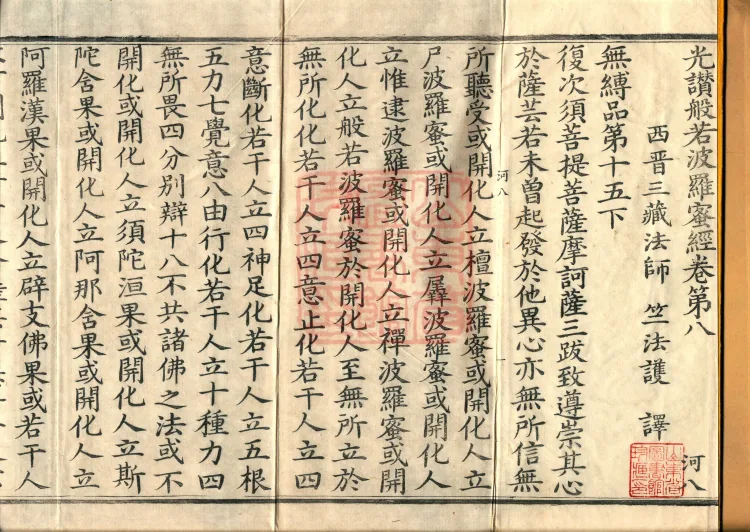 光讚般若波羅蜜經卷第八 河八
西晋三藏法師 竺法護 譯
無縛品第十五下
復次須菩提菩薩摩訶薩三跋致遵崇其心
於薩芸若未曾起發於他異心亦無所信無
河八
所聽受或開化人立檀波羅蜜或開化人立
尸波羅蜜或開化人立羼波羅蜜或開化人
立惟逮波羅蜜或開化人立禪波羅蜜或開
化人立般若波羅蜜於開化人至無所立於
無所化化若干人立四意止化若干人立四
意斷化若干人立四神足化若干人立五根
五力七覺意八由行化若干人立十種力四
無所畏四分別辯十八不共諸佛之法或不
開化或開化人立須陀洹果或開化人立斯
陀含果或開化人立阿那含果或開化人立
阿羅漢果或開化人立辟支佛果或若干人